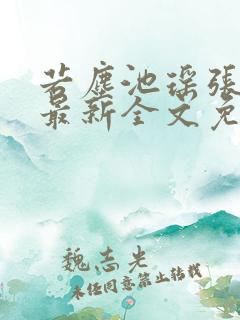 若尘池瑶张
最新全文免
魏志先
未经同意禁止转载